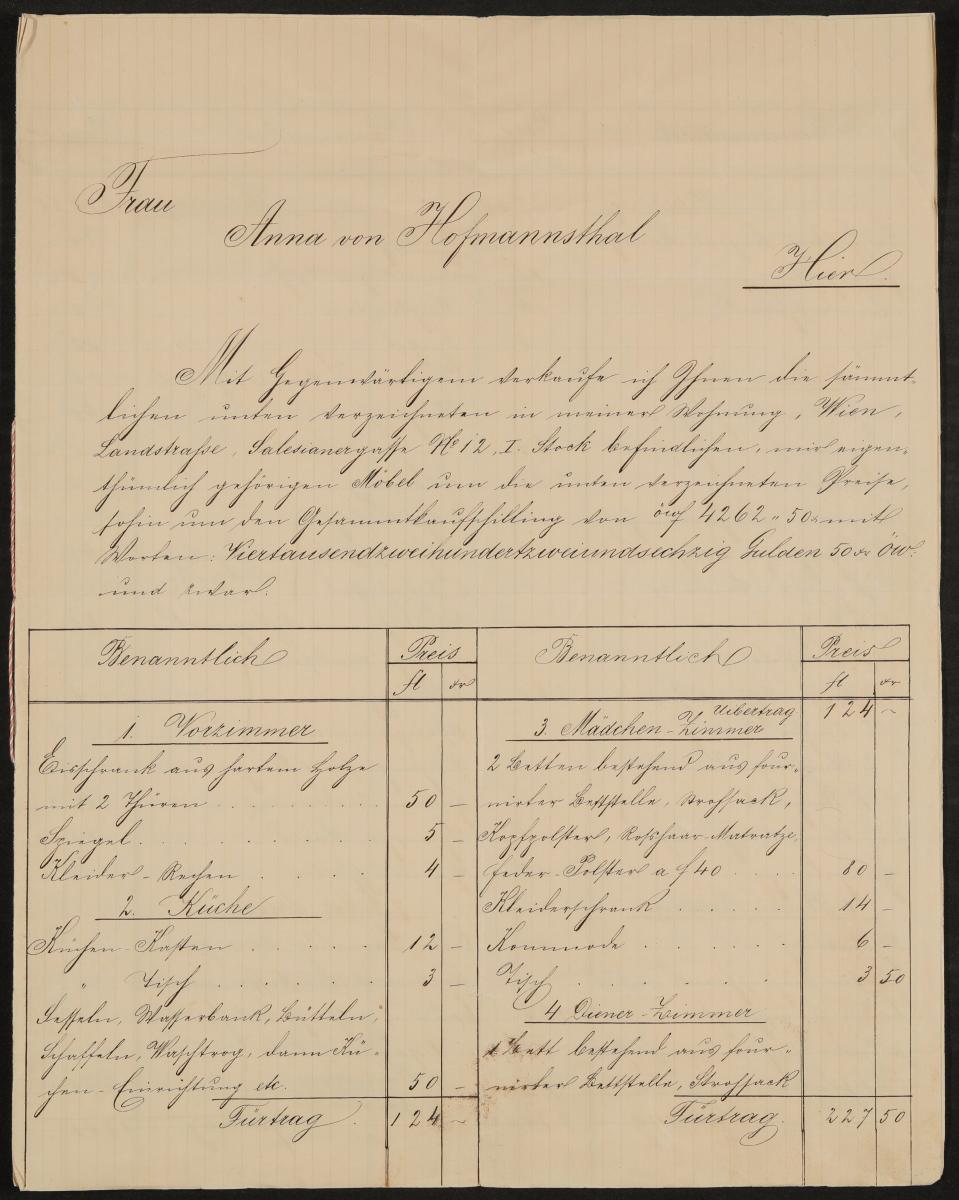 Frau
Anna von Hofmannsthal
Hier.
Mit Gegenwärtigem verkaufe ich Ihnen die sämmt-
lichen unten verzeichneten in meiner Wohnung, Wien,
Landstraße, Salesianergasse No 12, I. Stock befindlichen, mir eigen-
thümlich gehörigen Möbel um die unten verzeichneten Preise,
sohin um den Gesammtkaufschilling von öwf 4262 „ 50 mit
Worten: Viertausendzweihundertzweiundsechzig Gulden 50 kr Öw.
und zwar.
Benanntlich Preis
fl kr
1. Vorzimmer
Eisschrank aus hartem Holze
mit 2 Thüren . . . . . . 50 –
Spiegel . . . . . . . . 5 –
Kleider-Rechen . . . . 4 –
2. Küche
Küchen-Kasten . . . . . 12 –
„ Tisch . . . . . . 3 –
Sesseln, Wasserbank, Bütteln,
Schaffeln, Waschtrog, dann Kü-
chen-Einrichtung etc. 50 –
Fürtrag . 124 –
Benanntlich Preis
fl kr
Uebertrag 124 –
3. Mädchen-Zimmer
2 Betten bestehend aus four-
nirter Bettstelle, Strohsack,
Kopfpolster, Rosshaar-Matratze,
Feder-Polster a f 40 . . . . 80 –
Kleiderschrank . . . . . 14 –
Kommode . . . . . . 6 –
Tisch . . . . . . . 3 50
4 Diener-Zimmer
1 Bett bestehend aus four-
nirter Bettstelle, Strohsack
Fürtrag. 227 50